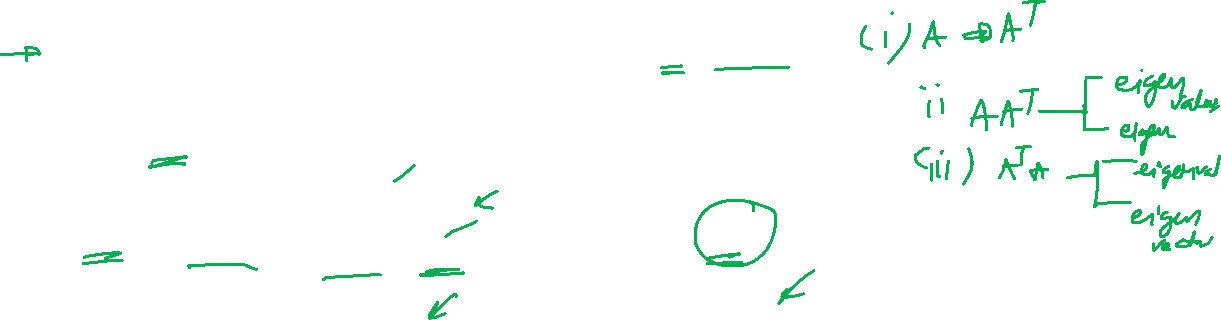 (i) A ⇒ A^T
ii AA^T eigen values
eigen
(iii) A^T A eigenval
eigen vector